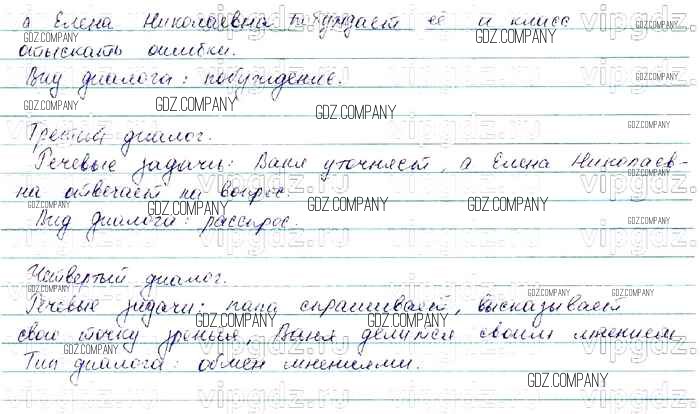 а Елена Николаевна побуждает её и класс
отыскать ошибки.
Вид диалога: побуждение.
Третий диалог.
Речевые задачи: Ваня уточняет, а Елена Николаев-
на отвечает на вопрос.
Вид диалога: расспрос.
Четвертый диалог.
Речевые задачи: папа спрашивает, высказывает
свою точку зрения, Ваня делится своим мнением
Тип диалога: обмен мнениями.